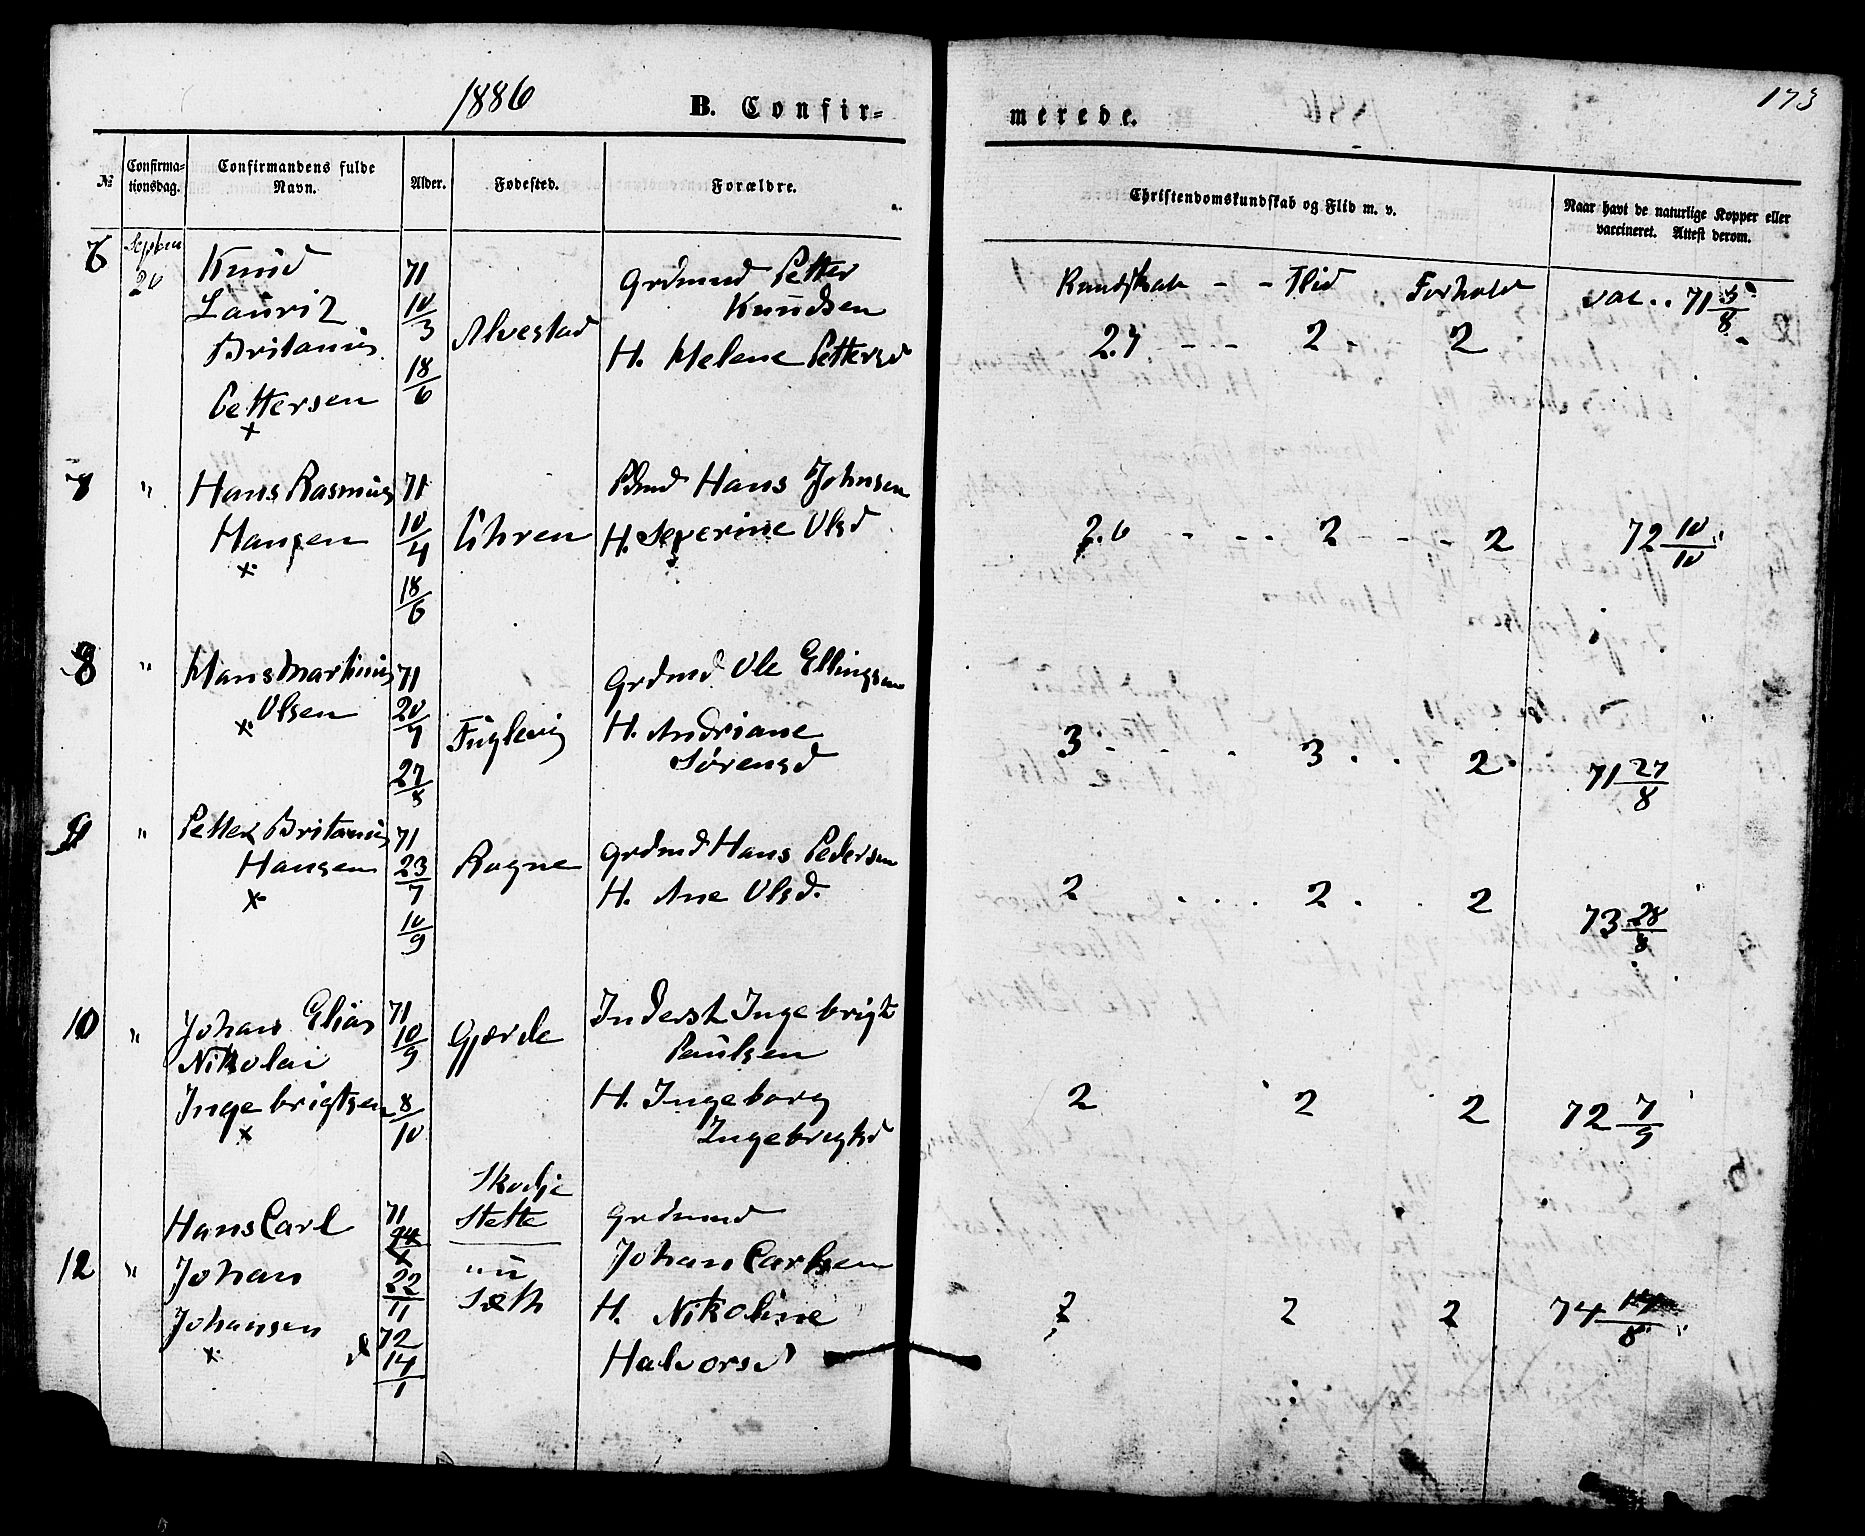 1886
B. Confir-
merede.
173
№
Confirma-
tionsdag.
Confirmandens fulde
Navn.
Alder.
Fødested.
Forældre.
Christendomskundskab og Flid m. v.
Naar havt de naturlige Kopper eller
vaccineret. Attest derom.
6
20
Knud
Lauritz
Britanius
Pettersen
x
71
10/3
18/6
Alvestad
Grdmnd Petter
Knudsen
H. Helene Pettersd
Kundskab - - Flid Forhold
2. - - - 2 - 2
vac. . 71 /8
7 "
Hans Rasmus
Hansen
x
71
10/4
18/6
Uhren
Hans Johnsen
H. Severine Olsd
2. - - - 2 - - - 2
72 10/10
8 "
Hans Martinus
Olsen
x
71
20/7
27/8
Fuglevig
Grdmd Ole Ellingsen
H. Andriane
Sørensd
3 - - - 3 . . 2
71 27/8
9 "
Petter Britanius
Hansen
x
71
23/7
10/9
Rogne
Grdmd Hans Pedersen
H. Ane Olsd.
2 . . . . 2 . . 2
73 28/8
10 "
Johan Elias
Nikolai
Ingebrigtsen
x
71
10/9
8/10
Gjærde
Inderst Ingebrigt
Paulsen
H. Ingeborg
Ingebrigtsd
2 2 2
72 7/9
12 "
Hans Carl
Johan
Johansen
x
71
22/11
d 72
14/1
Skodje
Stette
nu
Sæth
Grdmnd
Johan Carlsen
H. Nikoline
Halvorsd
2 2 2
74 /8